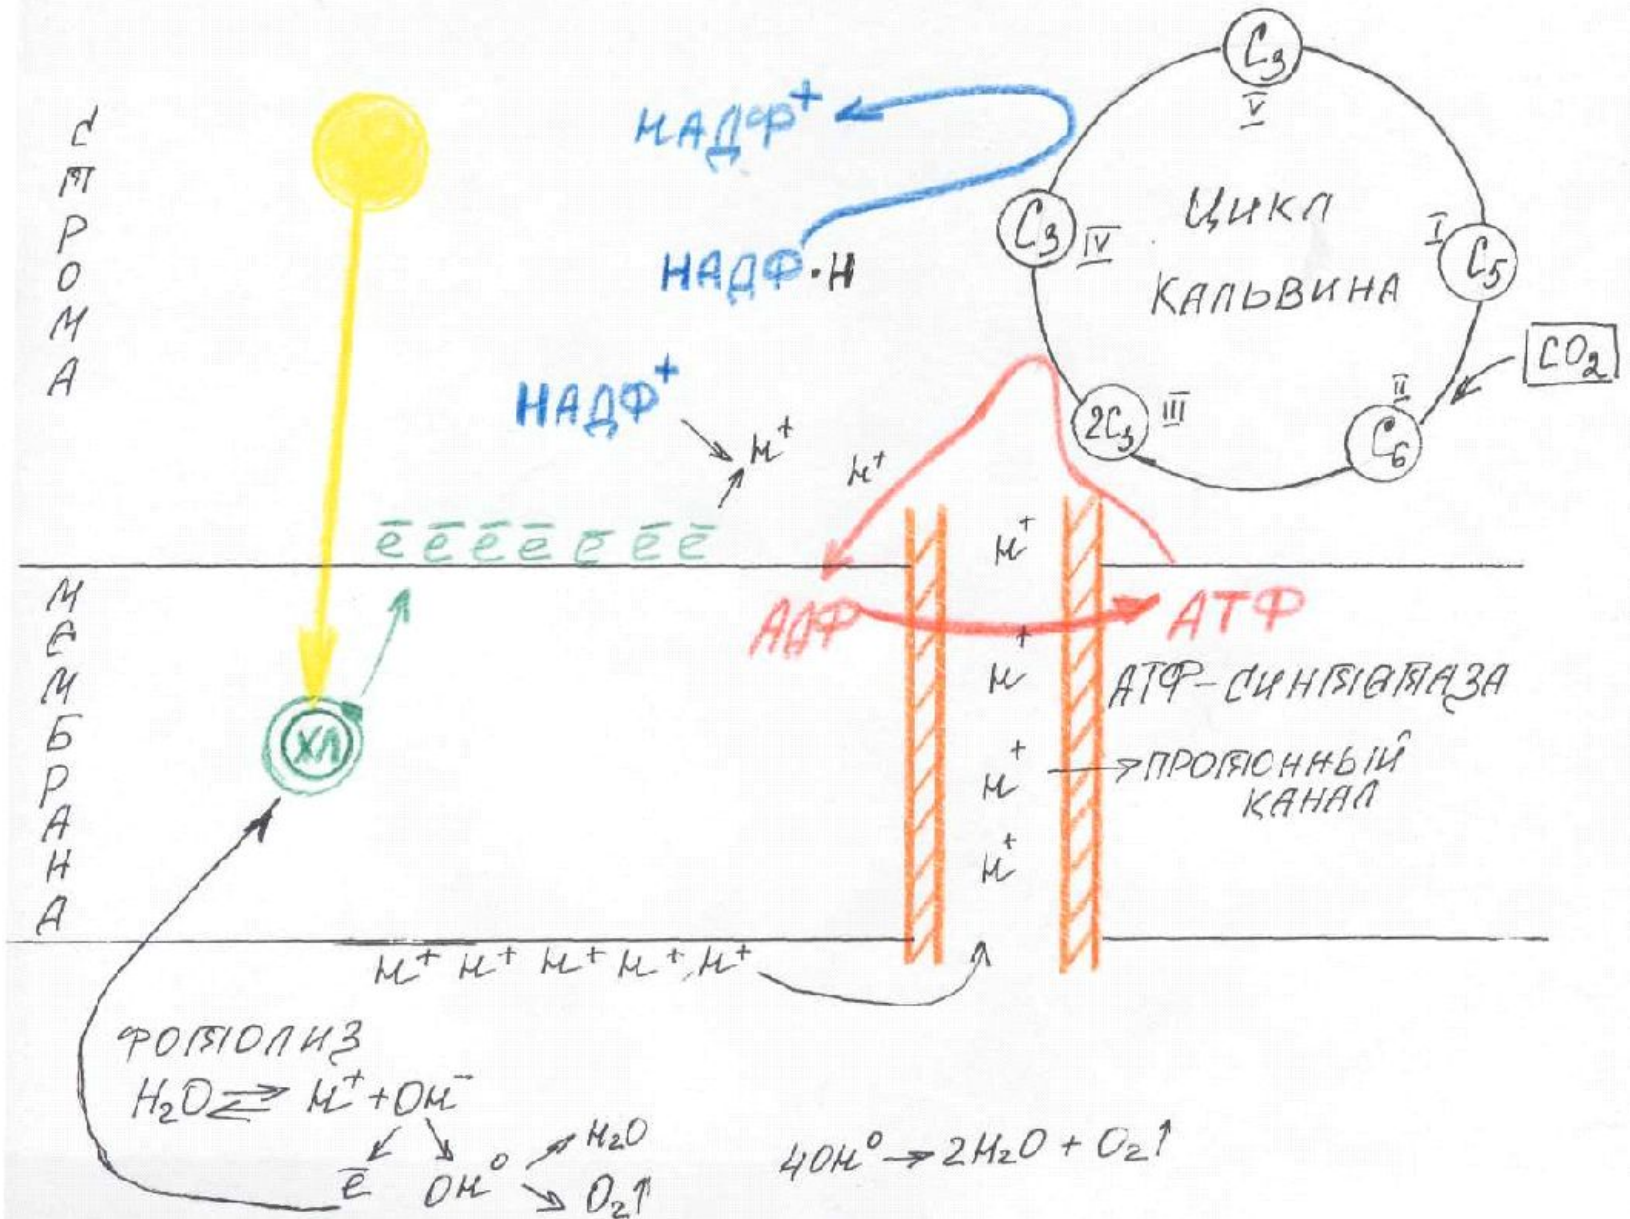 СТРОМА
НАДФ⁺
НАДФ·Н
НАДФ⁺
H⁺
H⁺
C₃
V
C₃ IV
ЦИКЛ
КАЛЬВИНА
I C₅
CO₂
II
C₆
2C₃ III
e̅ e̅ e̅ e̅ e̅ e̅ e̅
H⁺
МЕМБРАНА
АДФ
АТФ
H⁺
АТФ-СИНТЕТАЗА
ХЛ
H⁺
ПРОТОННЫЙ
КАНАЛ
H⁺
H⁺ H⁺ H⁺ H⁺ H⁺
ФОТОЛИЗ
H₂O ⇄ H⁺ + OH⁻
e̅ OH⁰
H₂O
O₂↑
4OH⁰ → 2H₂O + O₂↑